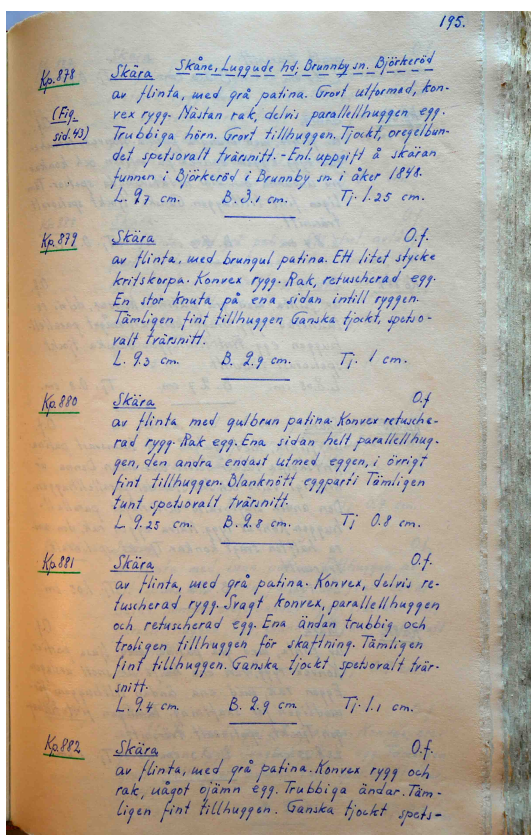 195.
Kp. 878 Skära Skåne, Luggude hd. Brunnby sn. Björkeröd
av flinta, med grå patina. Grovt utformad, kon-
(Fig. vex rygg. Nästan rak, delvis parallellhuggen egg.
sid. 43) Trubbiga hörn. Grovt tillhuggen. Tjockt, oregelbun-
det spetsovalt tvärsnitt. - Enl. uppgift å skäran
funnen i Björkeröd i Brunnby sn. i åker 1848.
L. 9.7 cm. B. 3.1 cm. Tj. 1.25 cm.
Kp. 879 Skära O.f.
av flinta, med brungul patina. Ett litet stycke
kritskorpa. Konvex rygg. Rak, retuscherad egg.
En stor knuta på ena sidan intill ryggen.
Tämligen fint tillhuggen. Ganska tjockt, spetso-
valt tvärsnitt.
L. 9.3 cm. B. 2.9 cm. Tj. 1 cm.
Kp. 880 Skära O.f
av flinta med gulbrun patina. Konvex retusche-
rad rygg. Rak egg. Ena sidan helt parallellhug-
gen, den andra endast utmed eggen, i övrigt
fint tillhuggen. Blanknött eggparti Tämligen
tunt spetsovalt tvärsnitt.
L 9.25 cm. B. 2.8 cm. Tj 0.8 cm.
Kp. 881 Skära O.f.
av flinta, med grå patina. Konvex, delvis re-
tuscherad rygg. Svagt konvex, parallellhuggen
och retuscherad egg. Ena ändan trubbig och
troligen tillhuggen för skaftning. Tämligen
fint tillhuggen. Ganska tjockt spetsovalt tvär-
snitt.
L. 9.4 cm. B. 2.9 cm. Tj. 1.1 cm.
Kp. 882 Skära O.f.
av flinta, med grå patina. Konvex rygg och
rak, något ojämn egg. Trubbiga ändar. Täm-
ligen fint tillhuggen. Ganska tjockt spets-